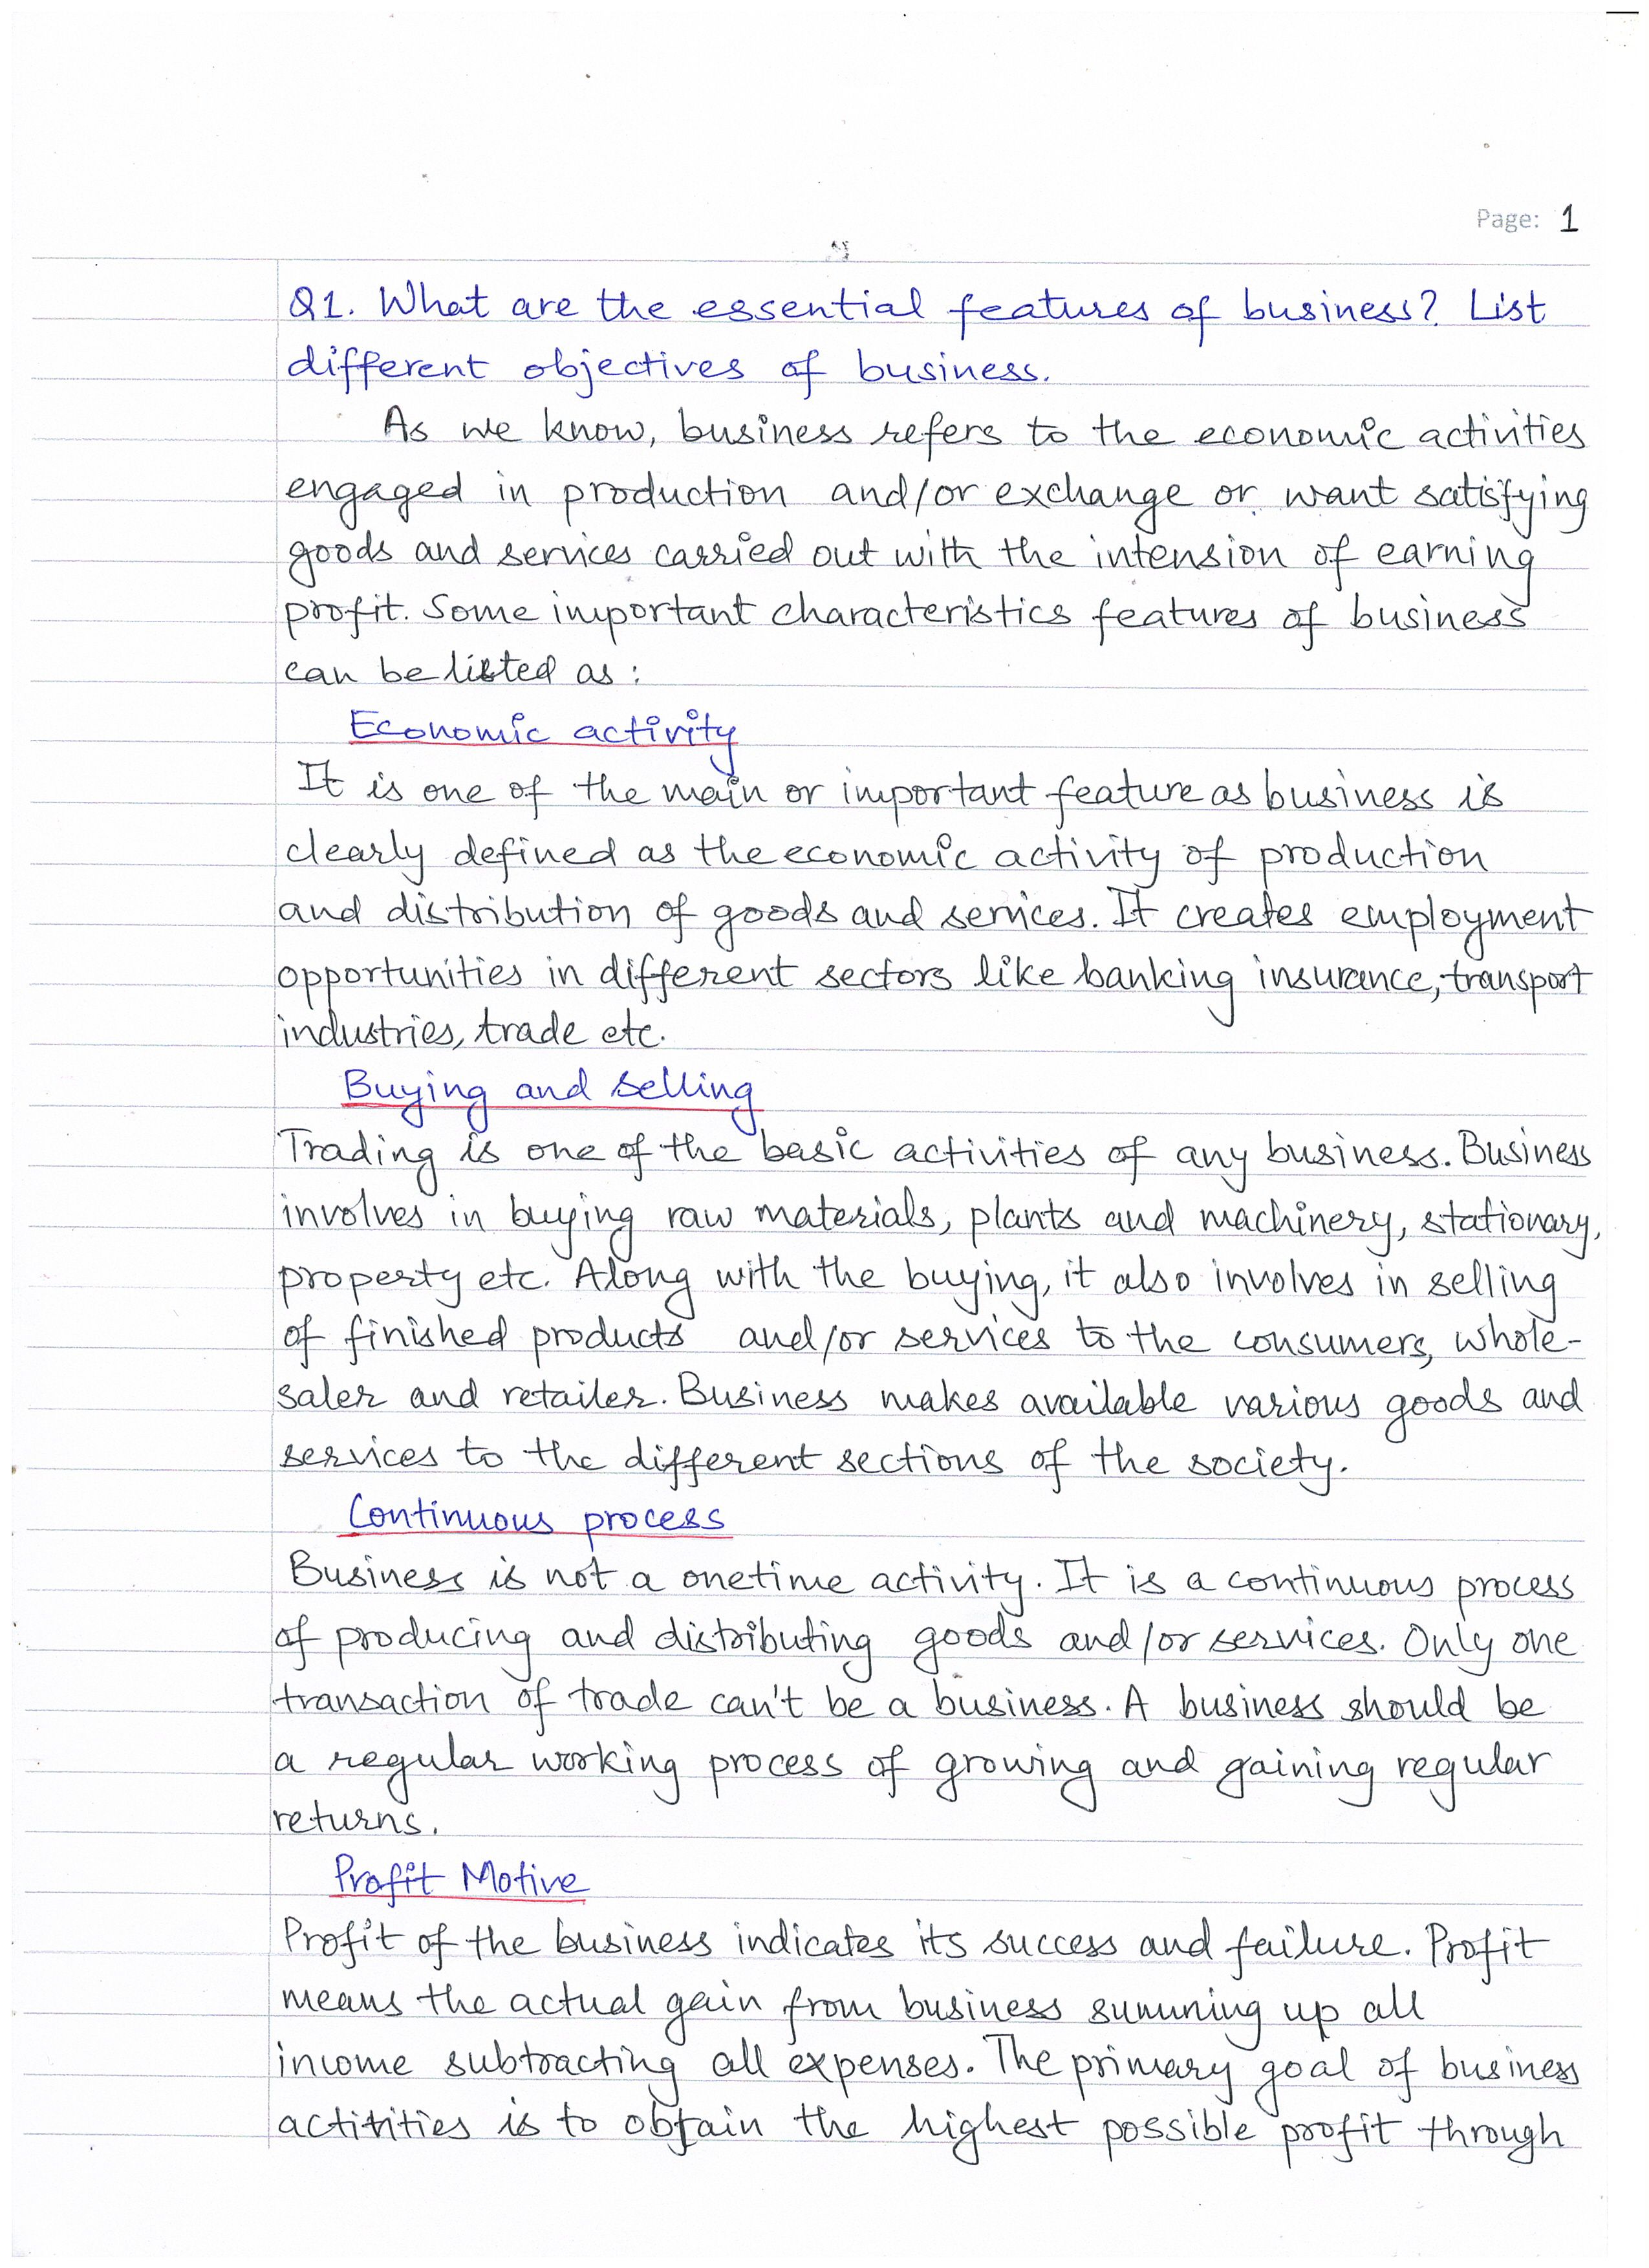 Page: 1
Q1. What are the essential features of business? List
different objectives of business.
As we know, business refers to the economic activities
engaged in production and/or exchange or want satisfying
goods and services carried out with the intension of earning
profit. Some important characteristics features of business
can be listed as:
Economic activity
It is one of the main or important feature as business is
clearly defined as the economic activity of production
and distribution of goods and services. It creates employment
opportunities in different sectors like banking insurance, transport
industries, trade etc.
Buying and selling
Trading is one of the basic activities of any business. Business
involves in buying raw materials, plants and machinery, stationary,
property etc. Along with the buying, it also involves in selling
of finished products and/or services to the consumers, whole-
saler and retailer. Business makes available various goods and
services to the different sections of the society.
Continuous process
Business is not a onetime activity. It is a continuous process
of producing and distributing goods and/or services. Only one
transaction of trade can't be a business. A business should be
a regular working process of growing and gaining regular
returns.
Profit Motive
Profit of the business indicates its success and failure. Profit
means the actual gain from business summing up all
income subtracting all expenses. The primary goal of business
activities is to obtain the highest possible profit through